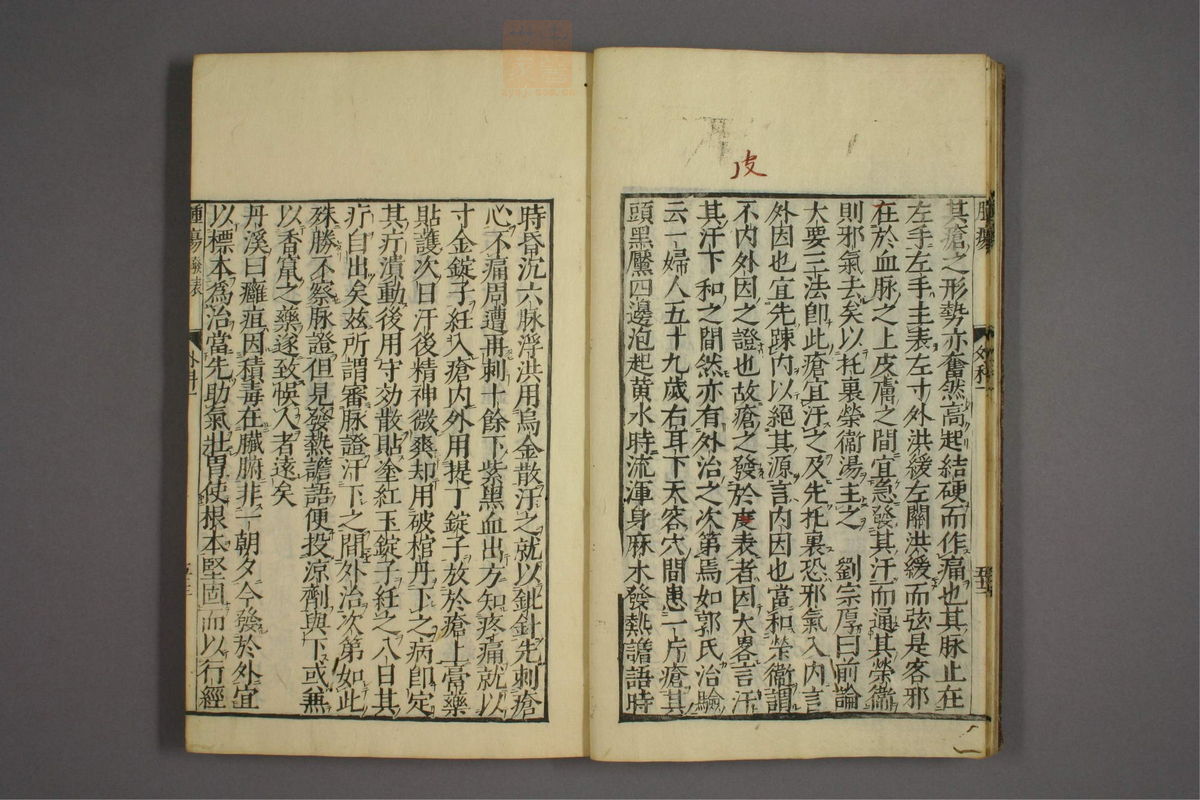 皮
腫瘍
外科一
五三
其瘡之形勢亦奮然高起結硬而作痛也其脉止在
左手左手主表左寸外洪緩左關洪緩而弦是客邪
在於血脉之上皮膚之間宜急發其汗而通其榮衞
則邪氣去矣以托裏榮衞湯主之 劉宗厚曰前論
大要三法卽此瘡宜汗之及先托裏恐邪氣入內言
外因也宜先踈內以絕其源言內因也當和榮衞謂
不內外因之證也故瘡之發於皮表者因大畧言汗
其汗下和之間然亦有外治之次第焉如郭氏治驗
云一婦人五十九歲右耳下天容穴間患一片瘡其
頭黑黶四邊泡起黃水時流渾身麻木發熱譫語時
時昏沉六脉浮洪用烏金散汗之就以鈚針先刺瘡
心不痛周遭再刺十餘下紫黑血出方知疼痛就以
寸金錠子紝入瘡內外用提丁錠子放於瘡上膏藥
貼護次日汗後精神微爽却用破棺丹下之病卽定
其疔潰動後用守効散貼塗紅玉錠子紝之八日其
疔自出矣玆所謂審脉證汗下之間外治次第如此
殊勝不察脉證但見發熱譫語便投涼劑與下或兼
以香竄之藥遂致悞人者遠矣
丹溪曰癰疽因積毒在臟腑非一朝夕今發於外宜
以標本爲治當先助氣壯胃使根本堅固而以行經
腫瘍
外科一
五三